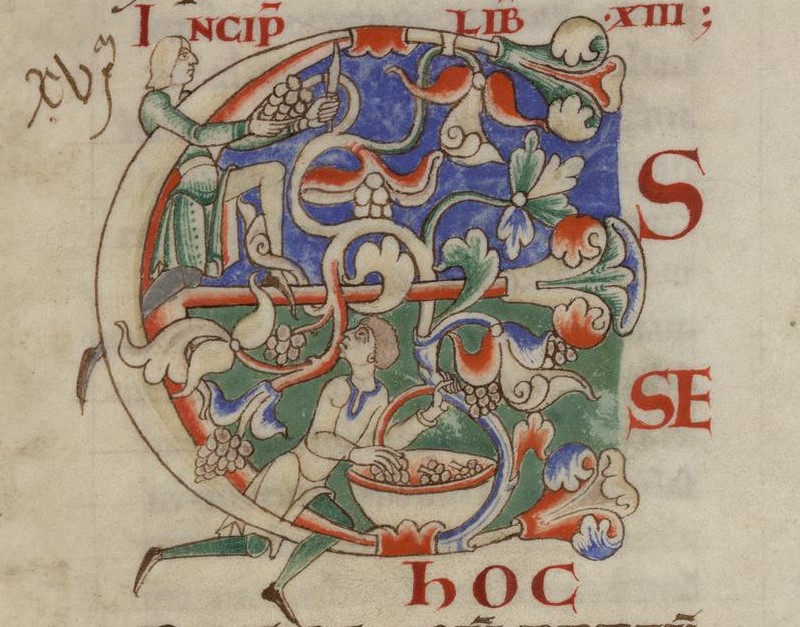 INCIP̄ LIB̄ ·XIII;
XVJ
E S
SE
hOC